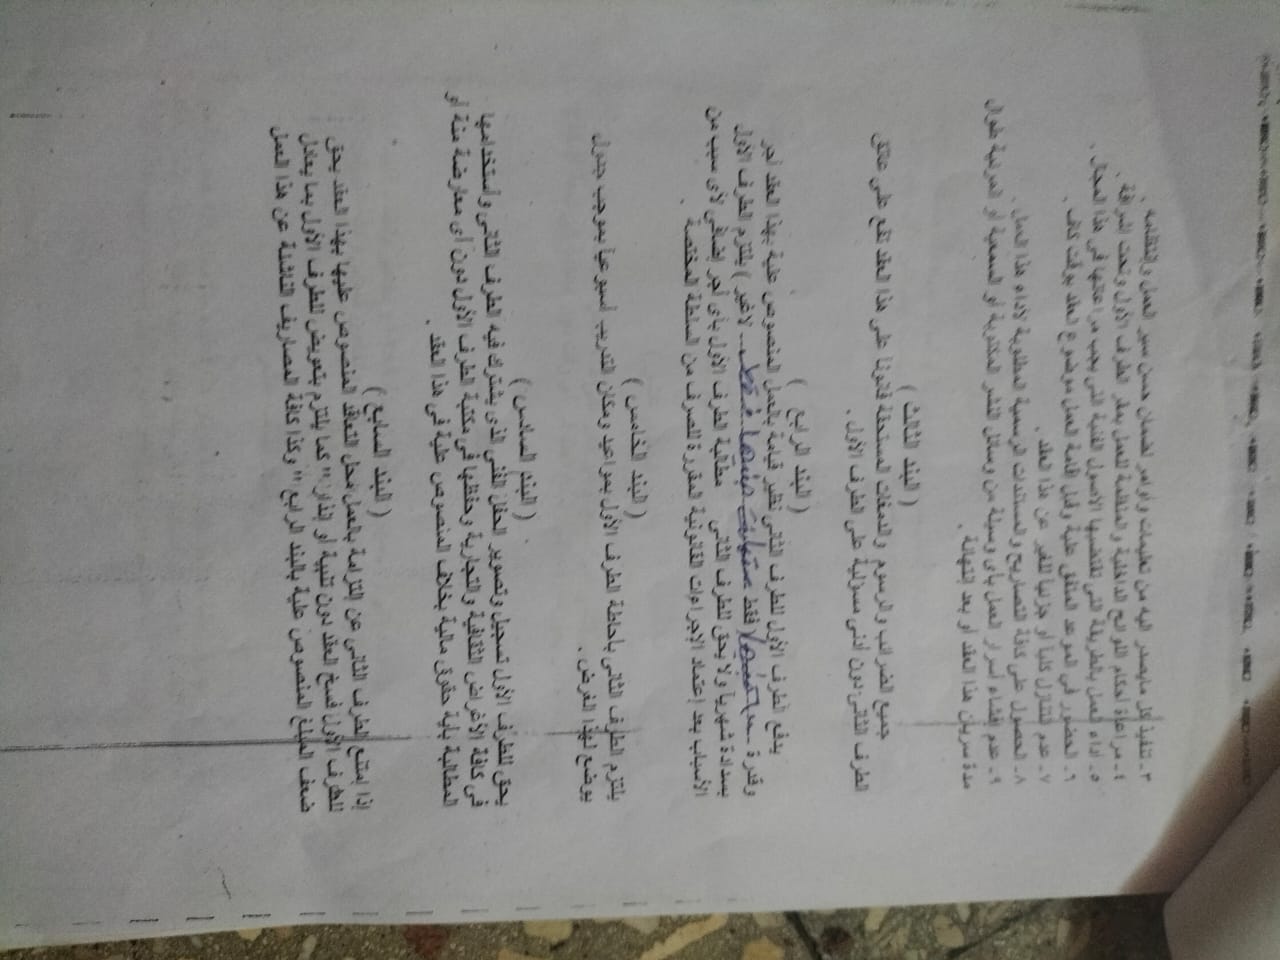 ٣ـ تنفيذ كل مايصدر اليه من تعليمات وأوامر لضمان حسن سير العمل وإنتظامه .
٤ـ مراعاة أحكام اللوائح الداخلية والمنظمة للعمل بمقر الطرف الأول وتحت إشرافة .
٥ـ اداء العمل بالطريقة التى تقتضيها الاصول الفنية التى يجب مراعاتها فى هذا المجال .
٦ـ الحضور فى الموعد المتفق علية وقبل إقامة العمل موضوع العقد بوقت كاف .
٧ـ عدم التنازل كليا أو جزئيا للغير عن هذا العقد .
٨ـ الحصول على كافة التصاريح والمستندات الرسمية المطلوبة لأداء هذا العمل .
٩ـ عدم إفشاء أسرار العمل بأى وسيلة من وسائل النشر المكتوبة أو السمعية أو المرئية طوال
مدة سريان هذا العقد أو بعد إنتهائة .
( البند الثالث )
جميع الضرائب والرسوم والدمغات المستحقة قانونا على هذا العقد تقع على عاتق
الطرف الثانى دون أدنى مسؤلية على الطرف الأول .
( البند الرابع )
يدفع الطرف الأول للطرف الثانى نظير قيامة بالعمل المنصوص علية بهذا العقد أجر
وقدرة ( فقط ستمائة جنيها فقط لاغير ) يلتزم الطرف الأول
بسدادة شهريا ولا يحق للطرف الثانى مطالبة الطرف الأول بأى أجر إضافى لأى سبب من
الأسباب بعد إعتماد الإجراءات القانونية المقررة للصرف من السلطة المختصة .
( البند الخامس )
يلتزم الطرف الثانى بإحاطة الطرف الأول بمواعيد ومكان التدريب أسبوعيا بموجب جدول
يوضع لهذا الغرض .
( البند السادس )
يحق للطرف الأول تسجيل وتصوير الحفل الفنى الذى يشترك فيه الطرف الثانى وأستخدامها
فى كافة الأغراض الثقافية والتجارية وحفظها فى مكتبة الطرف الأول دون أى معارضة منة أو
المطالبة بأية حقوق مالية بخلاف المنصوص علية فى هذا العقد .
( البند السابع )
إذا إمتنع الطرف الثانى عن إلتزامة بالعمل محل التعاقد المنصوص عليها بهذا العقد يحق
للطرف الأول فسخ العقد دون تنبية أو إنذار "كما يلتزم بتعويض للطرف الأول بما يعادل
ضعف المبلغ المنصوص علية بالبند الرابع " وكذا كافة المصاريف الناشئة عن هذا العمل